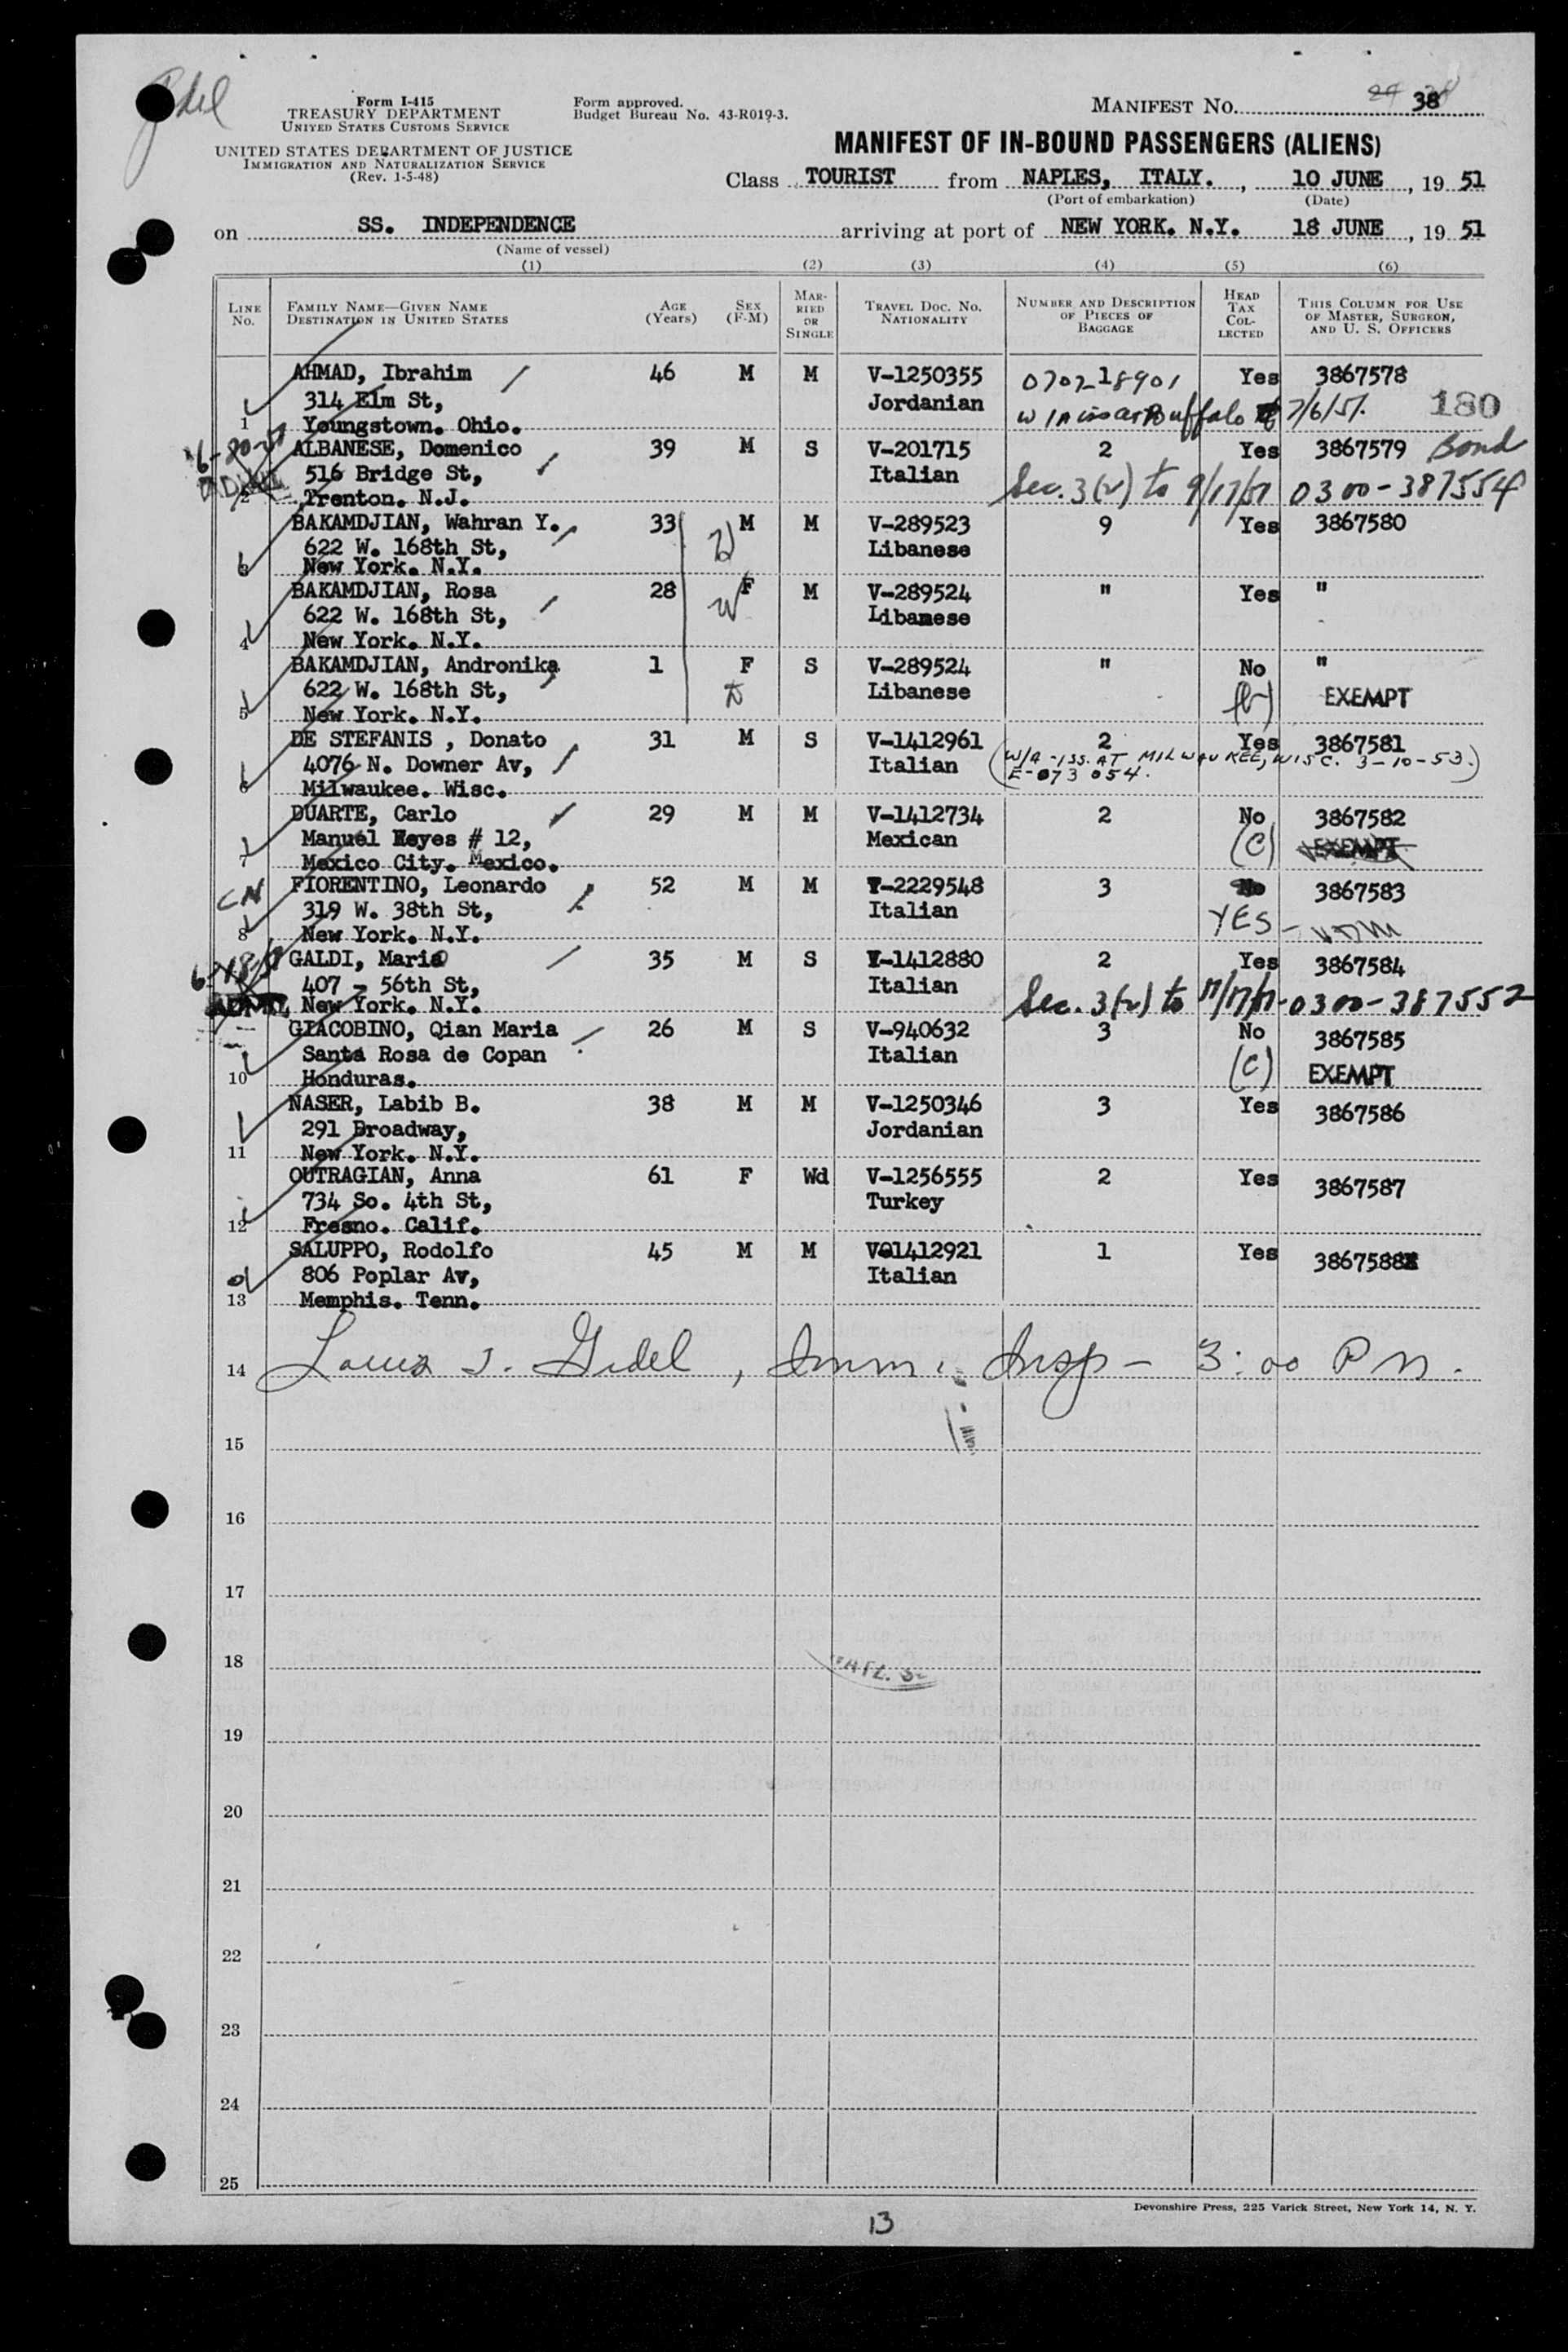 Form I-415
TREASURY DEPARTMENT
UNITED STATES CUSTOMS SERVICE
UNITED STATES DEPARTMENT OF JUSTICE
IMMIGRATION AND NATURALIZATION SERVICE
(Rev. 1-5-48)
Form approved.
Budget Bureau No. 43-R019-3.
MANIFEST NO. 38
MANIFEST OF IN-BOUND PASSENGERS (ALIENS)
Class TOURIST from NAPLES, ITALY. , 10 JUNE , 19 51
(Port of embarkation) (Date)
on SS. INDEPENDENCE arriving at port of NEW YORK. N.Y. 18 JUNE , 19 51
(Name of vessel)
(1) (2) (3) (4) (5) (6)
LINE NO. FAMILY NAME—GIVEN NAME DESTINATION IN UNITED STATES AGE (Years) SEX (F-M) MARRIED OR SINGLE TRAVEL DOC. NO. NATIONALITY NUMBER AND DESCRIPTION OF PIECES OF BAGGAGE HEAD TAX COLLECTED THIS COLUMN FOR USE OF MASTER, SURGEON, AND U. S. OFFICERS
AHMAD, Ibrahim 46 M M V-1250355 0702-18901 Yes 3867578
314 Elm St, Jordanian Buffalo 7/6/51. 180
1 Youngstown. Ohio.
ALBANESE, Domenico 39 M S V-201715 2 Yes 3867579 Bond
516 Bridge St, Italian Sec. 3(2) to 9/17/51 0300-387554
2 Trenton. N.J.
BAKAMDJIAN, Wahran Y. 33 M M V-289523 9 Yes 3867580
622 W. 168th St, Libanese
3 New York. N.Y.
BAKAMDJIAN, Rosa 28 F M V-289524 " Yes "
622 W. 168th St, Libanese
4 New York. N.Y.
BAKAMDJIAN, Andronika 1 F S V-289524 " No "
622 W. 168th St, Libanese EXEMPT
5 New York. N.Y.
DE STEFANIS , Donato 31 M S V-1412961 2 Yes 3867581
4076 N. Downer Av, Italian (W/A-ISS. AT MILWAUKEE, WISC. 3-10-53.)
E-073054.
6 Milwaukee. Wisc.
DUARTE, Carlo 29 M M V-1412734 2 No 3867582
Manuel Reyes # 12, Mexican (C) EXEMPT
7 Mexico City. Mexico.
CN FIORENTINO, Leonardo 52 M M T-2229548 3 No 3867583
319 W. 38th St, Italian YES -
8 New York. N.Y.
GALDI, Mario 35 M S V-1412880 2 Yes 3867584
407 - 56th St, Italian Sec. 3(2) to 0300-387552
New York. N.Y.
GIACOBINO, Qian Maria 26 M S V-940632 3 No 3867585
Santa Rosa de Copan Italian (C) EXEMPT
10 Honduras.
NASER, Labib B. 38 M M V-1250346 3 Yes 3867586
291 Broadway, Jordanian
11 New York. N.Y.
OUTRAGIAN, Anna 61 F Wd V-1256555 2 Yes 3867587
734 So. 4th St, Turkey
12 Fresno. Calif.
SALUPPO, Rodolfo 45 M M V01412921 1 Yes 3867588
806 Poplar Av, Italian
13 Memphis. Tenn.
14 Louis J. Gidel, Imm. Insp - 3:00 PM.
15
16
17
18
19
20
21
22
23
24
25
Devonshire Press, 225 Varick Street, New York 14, N. Y.
13